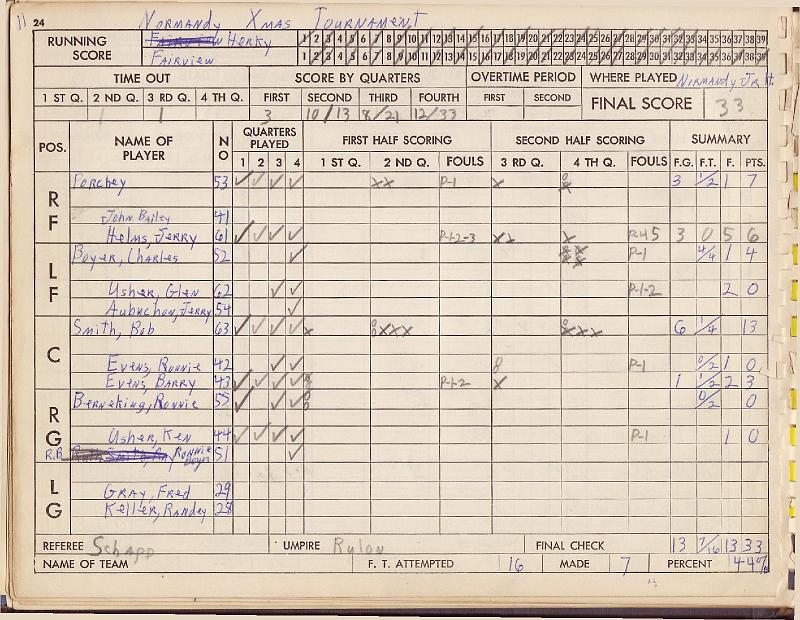 11 24 Normandy Xmas Tournament
RUNNING SCORE
Fairview Herky 1 2 3 4 5 6 7 8 9 10 11 12 13 14 15 16 17 18 19 20 21 22 23 24 25 26 27 28 29 30 31 32 33 34 35 36 37 38 39
Fairview 1 2 3 4 5 6 7 8 9 10 11 12 13 14 15 16 17 18 19 20 21 22 23 24 25 26 27 28 29 30 31 32 33 34 35 36 37 38 39
TIME OUT SCORE BY QUARTERS OVERTIME PERIOD WHERE PLAYED Normandy Jr H.
1 ST Q. 2 ND Q. 3 RD Q. 4 TH Q. FIRST SECOND THIRD FOURTH FIRST SECOND FINAL SCORE 33
1 1 3 10/13 8/21 12/33
POS. NAME OF PLAYER NO QUARTERS PLAYED FIRST HALF SCORING SECOND HALF SCORING SUMMARY
1 2 3 4 1 ST Q. 2 ND Q. FOULS 3 RD Q. 4 TH Q. FOULS F.G. F.T. F. PTS.
RF
Porchey 53 ✓ ✓ ✓ ✓ xx P-1 x 0 x 3 1/2 1 7
John Bailey 41
Helms, Jerry 61 ✓ ✓ ✓ ✓ P-1-2-3 xx x P-4 5 3 0 5 6
LF
Boyer, Charles 52 ✓ P-1 4/4 1 4
Usher, Glen 62 ✓ ✓ P-1-2 2 0
Aubuchon, Jerry 54 ✓
C
Smith, Bob 63 ✓ ✓ ✓ ✓ x xxx xxx 6 1/4 13
Evens, Ronnie 42 ✓ ✓ 8 P-1 0/2 1 0
Evens, Barry 43 ✓ ✓ ✓ ✓ P-1-2 x 1 1/2 2 3
RG
Berneking, Ronnie 55 ✓ ✓ ✓ 0/2 0
Usher, Ken 44 ✓ ✓ ✓ ✓ P-1 1 0
R.B. Ronnie 51 ✓
LG
Gray, Fred 29
Keller, Randey 28
REFEREE Schapp UMPIRE Rylon FINAL CHECK 13 7/16 13 33
NAME OF TEAM F. T. ATTEMPTED 16 MADE 7 PERCENT 44%